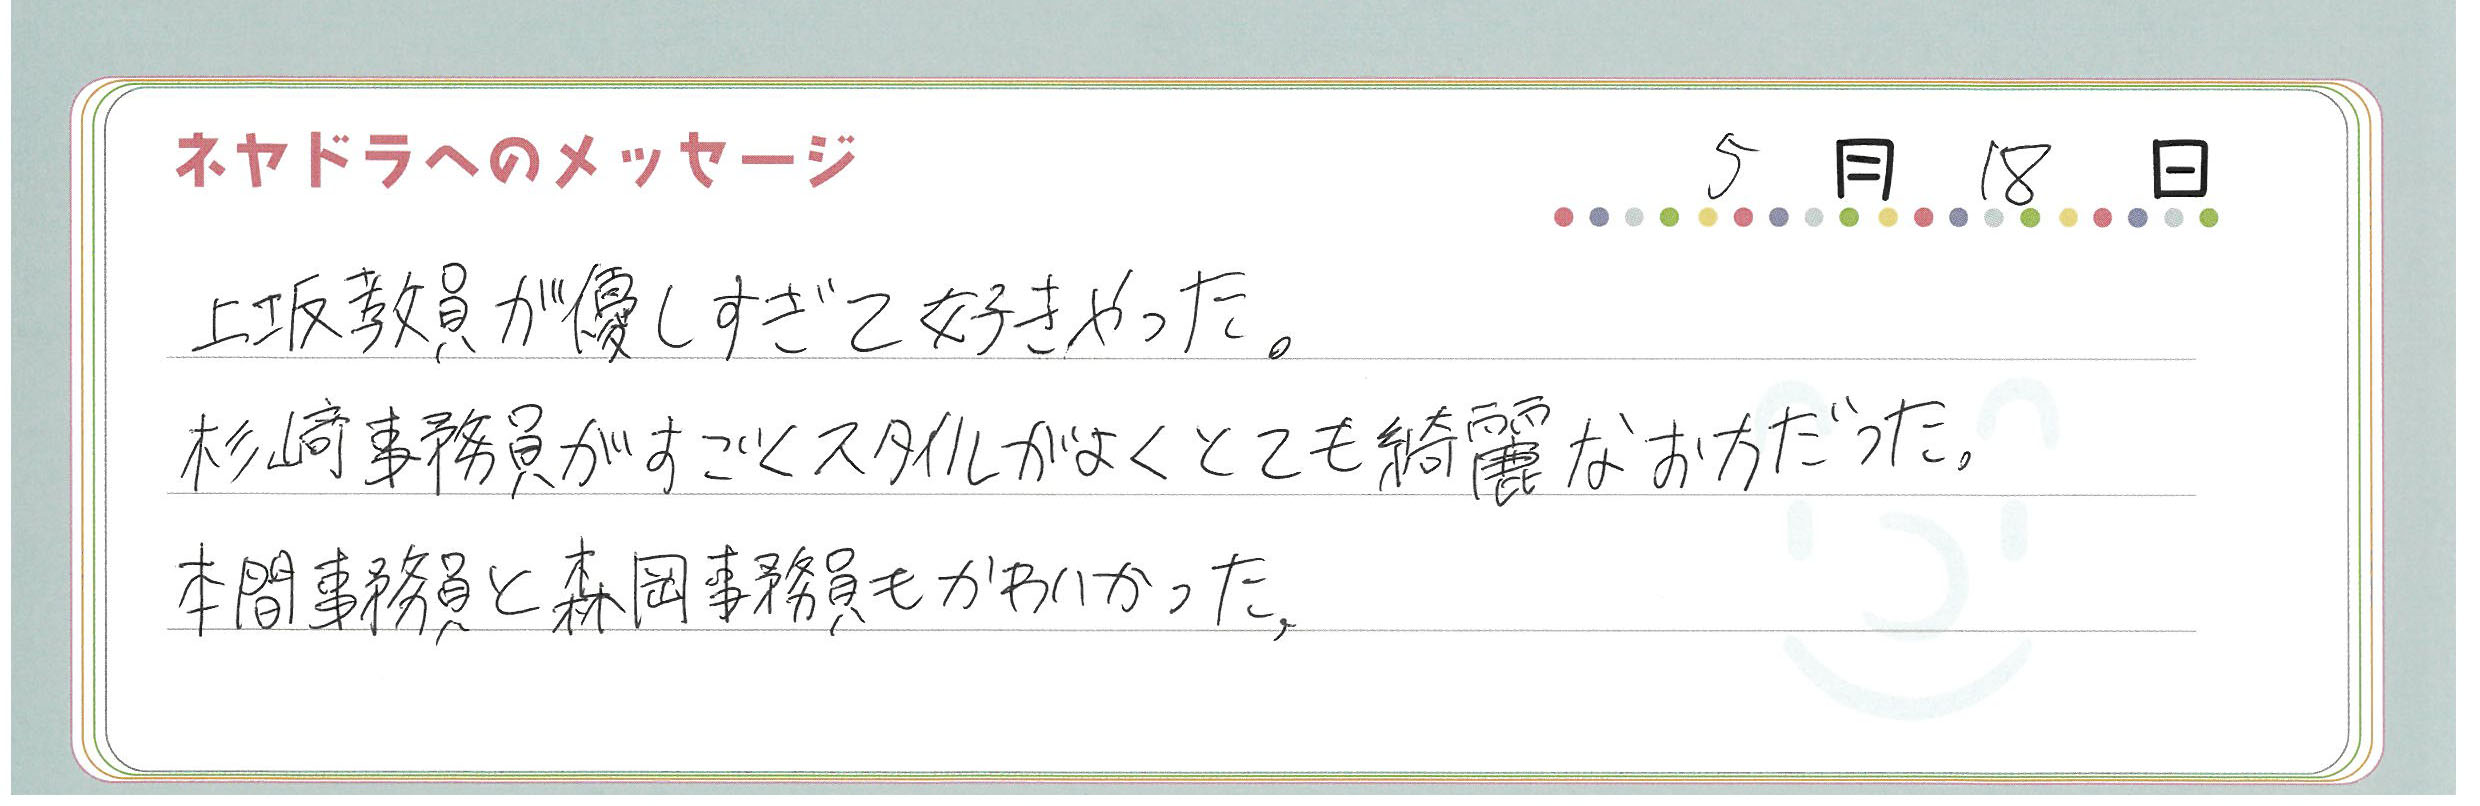 ネヤドラへのメッセージ
5月18日
上坂教員が優しすぎて好きやった。
杉﨑事務員がすごくスタイルがよくとても綺麗なお方だった。
本間事務員と森岡事務員もかわいかった、